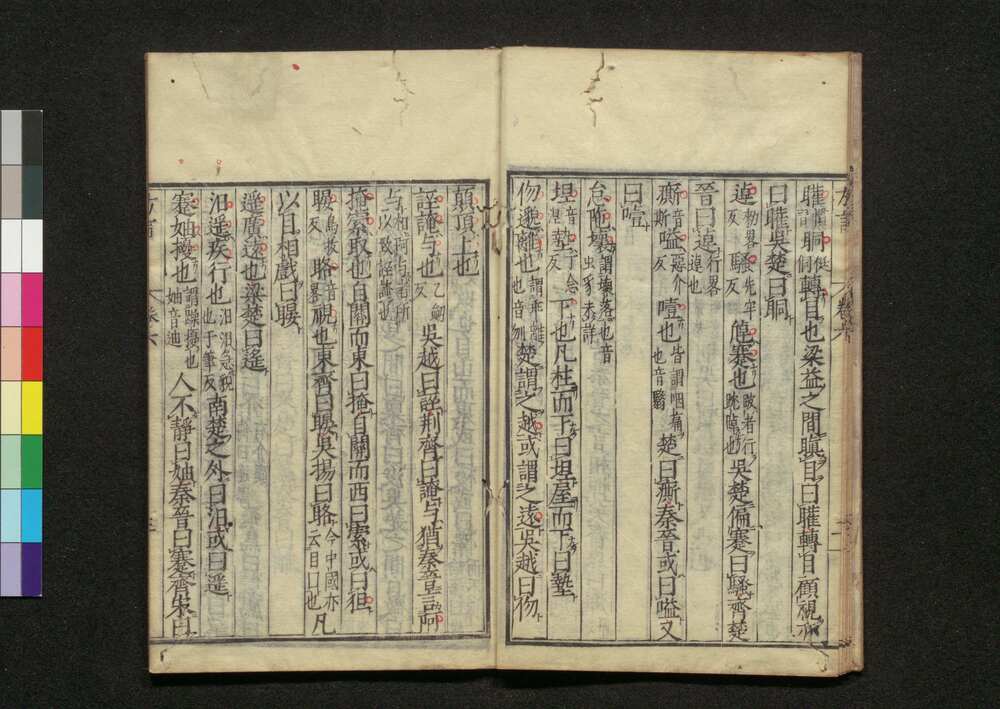 矔 慣習 眮 侹侗 轉目也梁益之間瞋目曰矔轉目顧視亦
曰矔吳楚曰眮
逴 勑略反 騷 先牢反 㿉蹇也 跛者行跣踔也 吳楚偏蹇曰騷齊楚
晉曰逴 行略逴也
㾷 音斯 嗌 惡介反 噎也 皆謂咽痛也音翳 楚曰㾷秦晉或曰嗌又
曰噎
怠阤壞 謂壞落也音虫豸未詳
垤 音涅 墊 丁念反 下也凡柱而下曰垤屋而下曰墊
伆邈離也 謂乖離也音刎 楚謂之越或謂之遠吳越曰伆
顛頂上也
誣䛳与也 乙劒反 吳越曰誣荆齊曰䛳与猶秦晉言阿
与 相阿与者所以致誣䛳也
掩索取也自關而東曰掩自關而西曰索或曰狚
䁆 烏拔反 略 音略 視也東齊曰䁆吳揚曰略 今中國亦云目略也 凡
以目相戲曰䁆
遥廣遠也梁楚曰遥
汩遥疾行也 汩汩急貌也于筆反 南楚之外曰汩或曰遥
蹇妯擾也 謂躁擾也妯音迪 人不靜曰妯秦晉曰蹇齊宋曰
方言
卷六